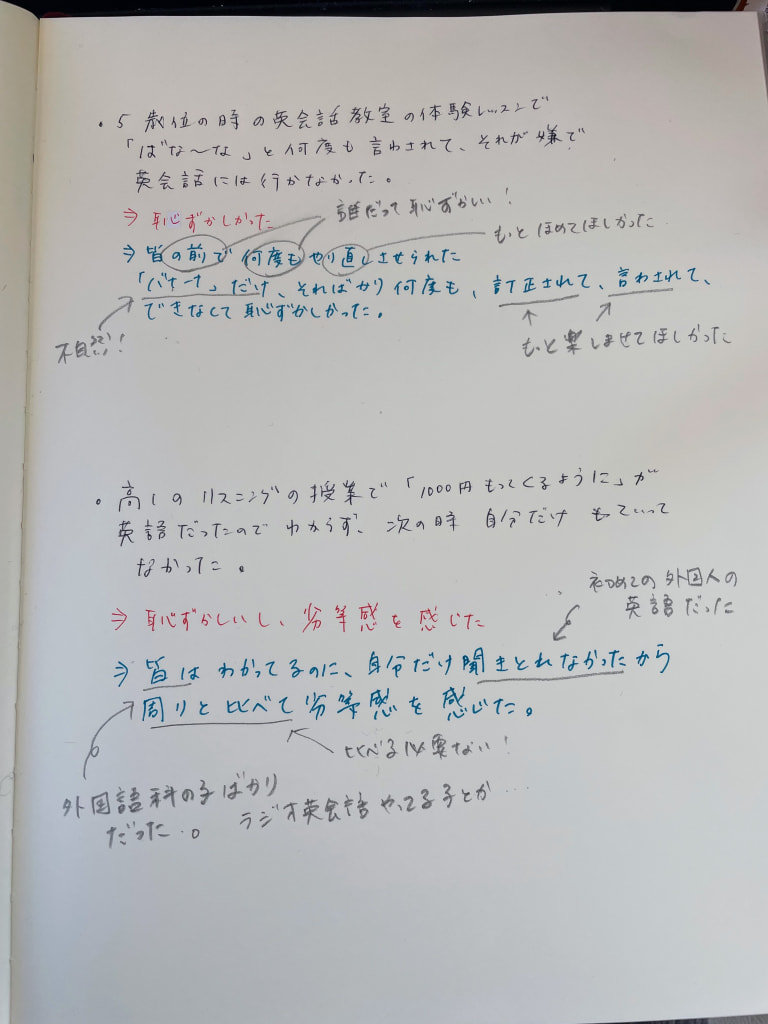 ・5歳位の時の英会話教室の体験レッスンで
「ばな〜な」と何度も言わされて、それが嫌で
英会話には行かなかった。
⇒ 恥ずかしかった
誰だって恥ずかしい!
⇒ 皆の前で何度もやり直しさせられた
もっとほめてほしかった
「バナナ」だけ、そればかり何度も、訂正されて、言わされて、
できなくて恥ずかしかった。
不自然!
もっと楽しませてほしかった
・高1のリスニングの授業で「1000円もってくるように」が
英語だったのでわからず、次の時 自分だけ もっていって
なかった。
初めての外国人の
英語だった
⇒ 恥ずかしいし、劣等感を感じた
⇒ 皆はわかってるのに、自分だけ聞きとれなかったから
周りと比べて劣等感を感じた。
比べる必要ない!
外国語科の子ばかり
だった。
ラジオ英会話やってる子とか…